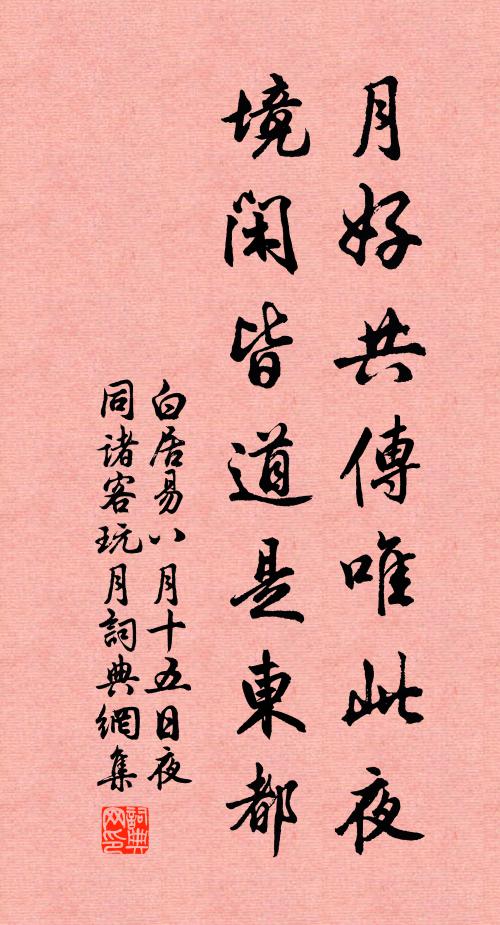 月好共傳唯此夜
境閑皆道是東都
白居易八月十五日夜
同諸客玩月詞典網集
詞典网印